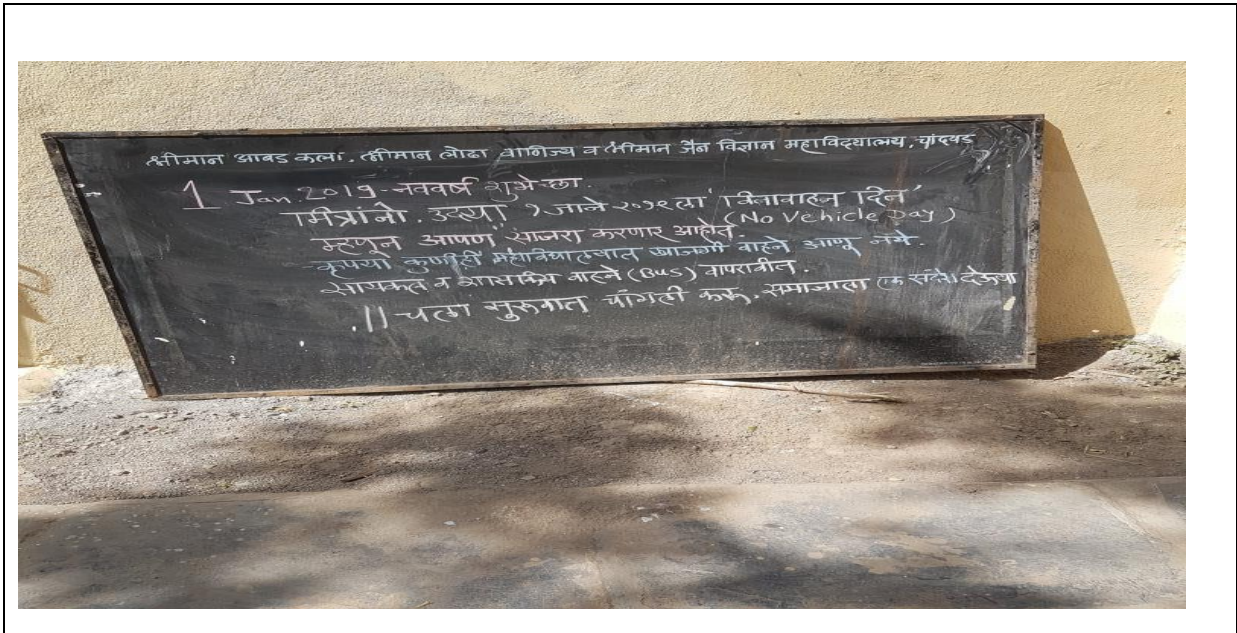 श्रीमान आबड कला, श्रीमान लोढा वाणिज्य व श्रीमान जैन विज्ञान महाविद्यालय, चांदवड
1 Jan. 2019 - नववर्ष शुभेच्छा.
मित्रांनो. उद्या १ जाने २०१९ ला 'विनावाहन दिन'
(No Vehicle Day)
म्हणून आपण साजरा करणार आहोत.
कृपया कुणीही महाविद्यालयात खाजगी वाहने आणू नये.
सायकल व शासकिय वाहने (Bus) वापरावीत.
|| चला सुरुवात चांगली करू, समाजाला एक संदेश देऊया